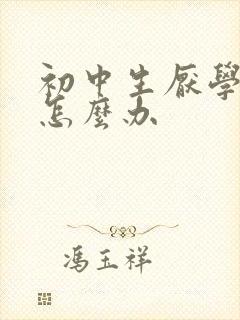 初中生厌學
怎麼办
馮玉祥